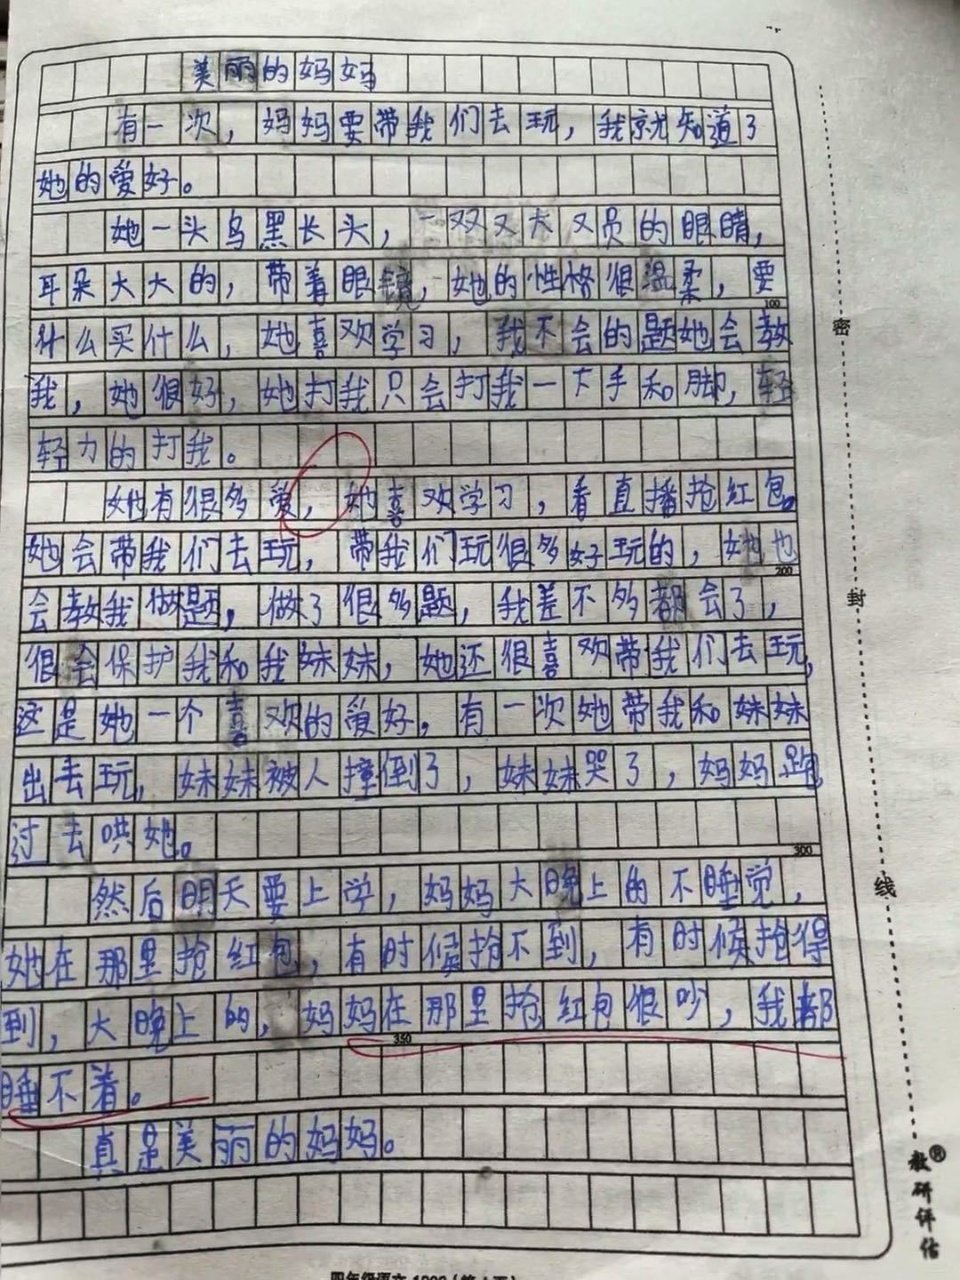 美丽的妈妈
有一次，妈妈要带我们去玩，我就知道了
她的爱好。
她一头乌黑长头，一双又大又员的眼睛，
耳朵大大的，带着眼镜，她的性格很温柔，要
什么买什么，她喜欢学习，我不会的题她会教
我，她很好，她打我只会打我一下手和脚，轻
轻力的打我。
她有很多爱，她喜欢学习，看直播抢红包。
她会带我们去玩，带我们玩很多好玩的，她也
会教我做题，做了很多题，我差不多都会了，
很会保护我和我妹妹，她还很喜欢带我们去玩，
这是她一个喜欢的爱好。有一次她带我和妹妹
出去玩，妹妹被人撞倒了，妹妹哭了，妈妈跑
过去哄她。
然后明天要上学，妈妈大晚上的不睡觉，
她在那里抢红包，有时候抢不到，有时候抢得
到，大晚上的，妈妈在那里抢红包很吵，我都
睡不着。
真是美丽的妈妈。
100
200
300
350
密
封
线
教研评估®